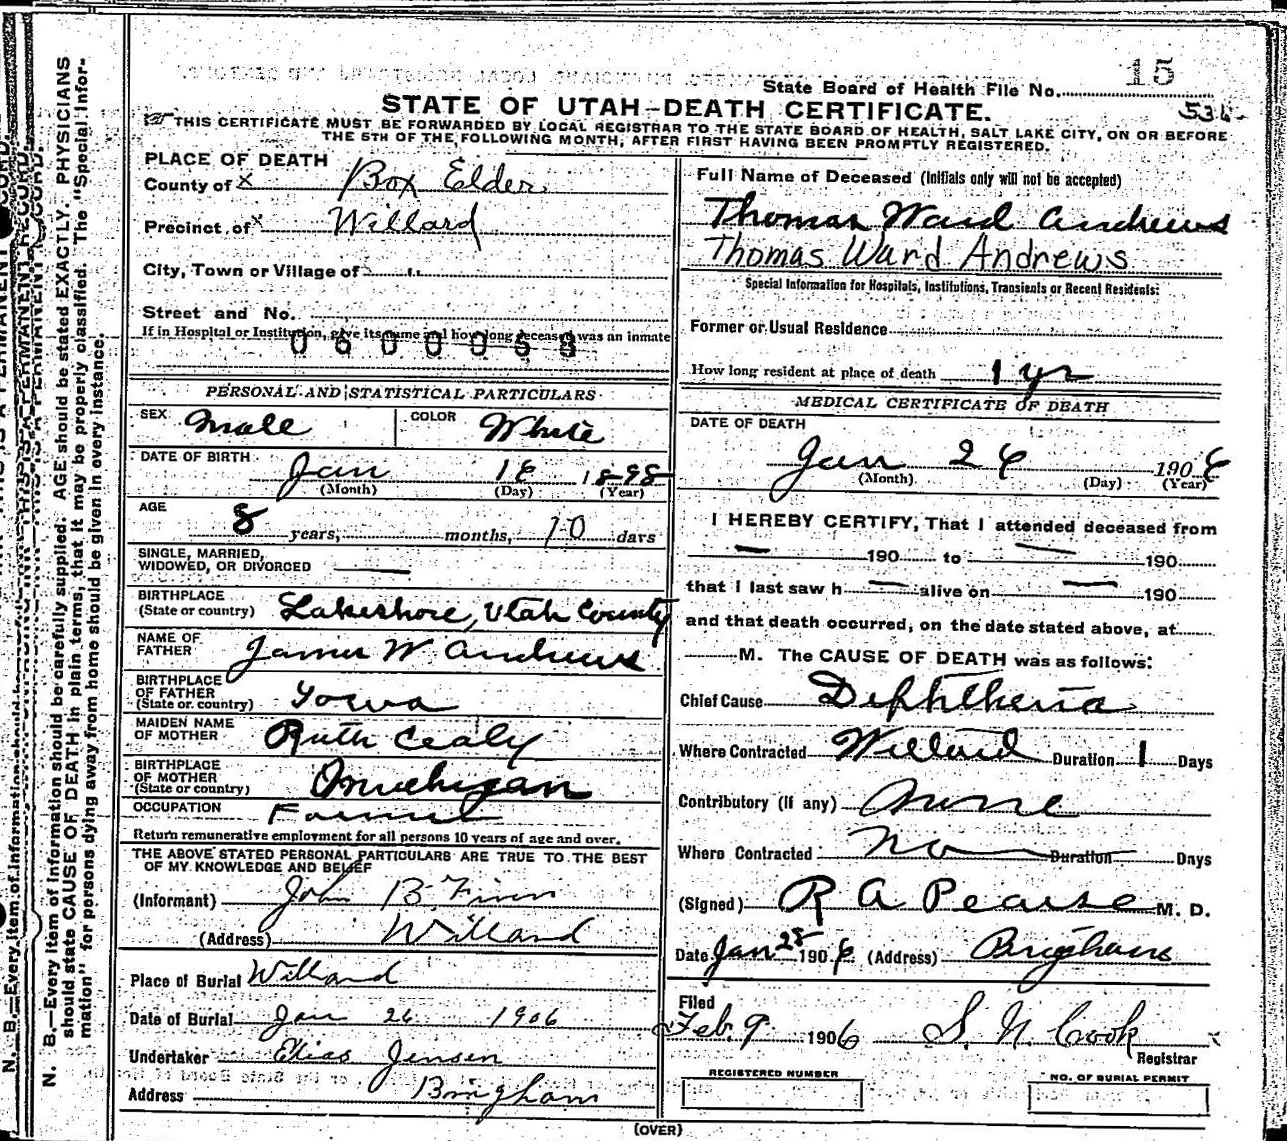 15
State Board of Health File No.
STATE OF UTAH-DEATH CERTIFICATE.
536
THIS CERTIFICATE MUST BE FORWARDED BY LOCAL REGISTRAR TO THE STATE BOARD OF HEALTH, SALT LAKE CITY, ON OR BEFORE
THE 5TH OF THE FOLLOWING MONTH, AFTER FIRST HAVING BEEN PROMPTLY REGISTERED.
PLACE OF DEATH
County of X Box Elder
Precinct of X Willard
City, Town or Village of "
Street and No.
If in Hospital or Institution, give its name and how long deceased was an inmate
0600053
PERSONAL AND STATISTICAL PARTICULARS
SEX Male COLOR White
DATE OF BIRTH Jan 16 1898
(Month) (Day) (Year)
AGE
8 years, months, 10 days
SINGLE, MARRIED,
WIDOWED, OR DIVORCED
BIRTHPLACE
(State or country) Lakeshore, Utah County
NAME OF
FATHER James W Andrews
BIRTHPLACE
OF FATHER
(State or country) Iowa
MAIDEN NAME
OF MOTHER Ruth Cealy
BIRTHPLACE
OF MOTHER
(State or country) Michigan
OCCUPATION Farmer
Return remunerative employment for all persons 10 years of age and over.
THE ABOVE STATED PERSONAL PARTICULARS ARE TRUE TO THE BEST
OF MY KNOWLEDGE AND BELIEF
(Informant) John B.
(Address) Willard
Place of Burial Willard
Date of Burial Jan 26 1906
Undertaker Elias Jensen
Address Bringham
Full Name of Deceased (Initials only will not be accepted)
Thomas Ward Andrews
Thomas Ward Andrews
Special Information for Hospitals, Institutions, Transients or Recent Residents:
Former or Usual Residence
How long resident at place of death 1 yr
MEDICAL CERTIFICATE OF DEATH
DATE OF DEATH
Jan 26 1906
(Month) (Day) (Year)
I HEREBY CERTIFY, That I attended deceased from
— 190 to — 190
that I last saw h — alive on — 190
and that death occurred, on the date stated above, at
M. The CAUSE OF DEATH was as follows:
Chief Cause Diphtheria
Where Contracted Willard Duration 1 Days
Contributory (if any) None
Where Contracted No Duration Days
(Signed) R A Pearse M. D.
Date Jan 28 1906 (Address) Brigham
Filed
Feb. 9 1906 S. N. Cook
Registrar
REGISTERED NUMBER
NO. OF BURIAL PERMIT
(OVER)
N. B.—Every item of information should be carefully supplied. AGE should be stated EXACTLY. PHYSICIANS
should state CAUSE OF DEATH in plain terms, that it may be properly classified. The "Special Infor-
mation" for persons dying away from home should be given in every instance.